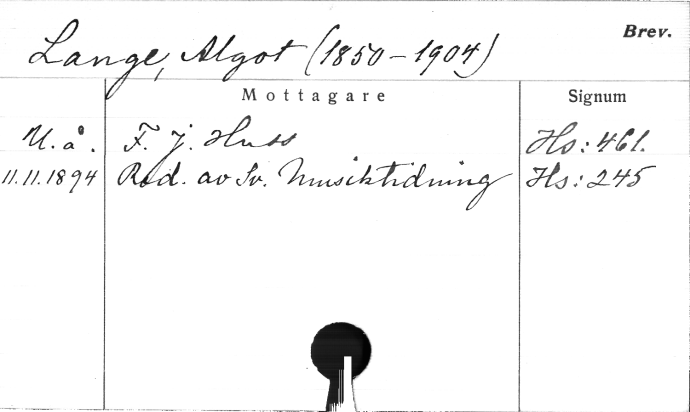 Brev.
Lange, Algot (1850-1904)
Mottagare Signum
U.å. F. J. Huss Hs: 461.
11.11.1894 Red. av Sv. Musiktidning Hs: 245